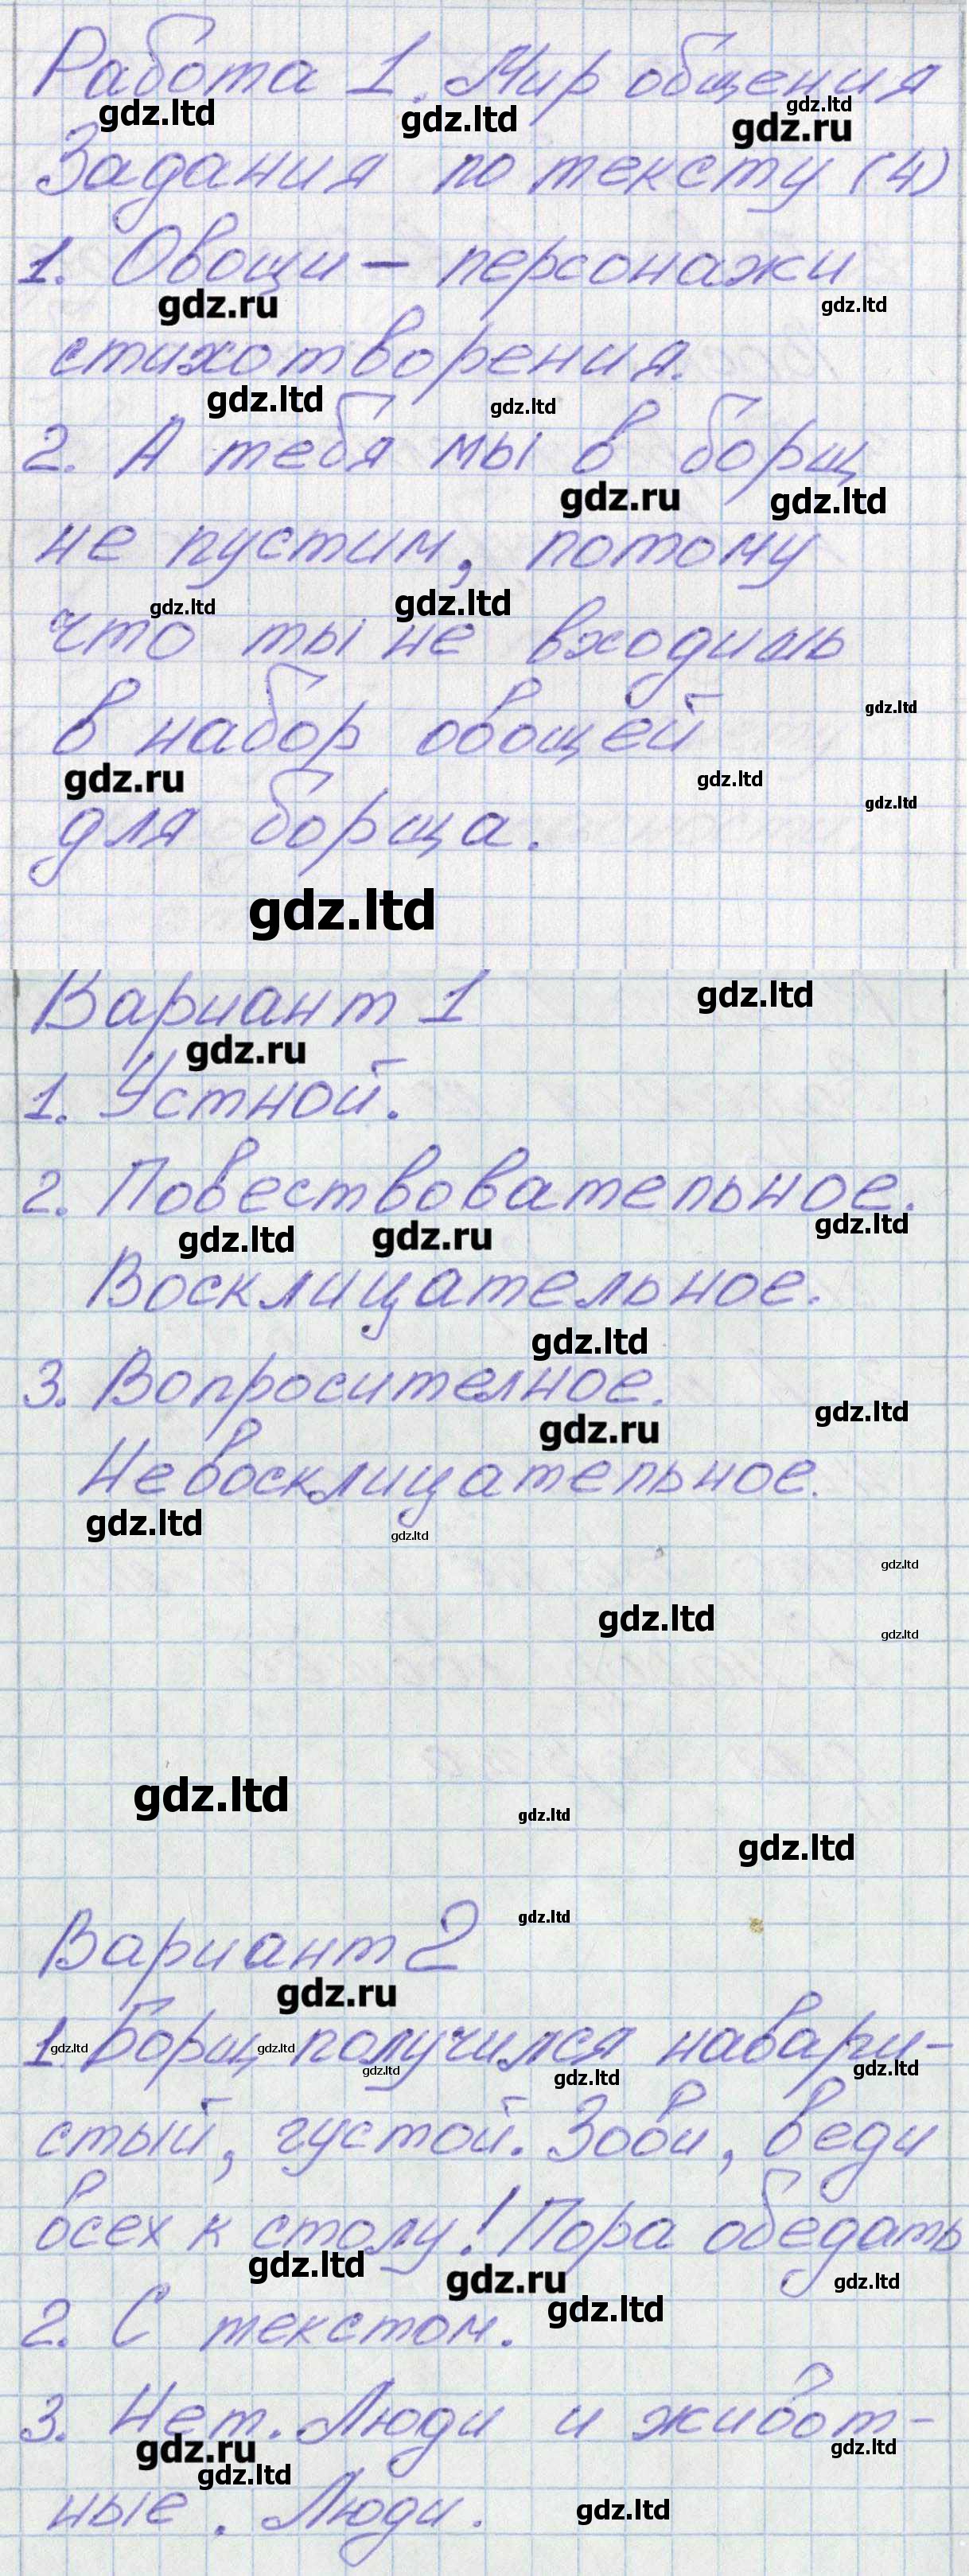 Работа 1. Мир общения
gdz.ltd gdz.ltd gdz.ltd
gdz.ru
Задания по тексту (4)
1. Овощи – персонажи
gdz.ru gdz.ltd
стихотворения.
gdz.ltd gdz.ltd
2. А тебя мы в борщ
gdz.ru gdz.ltd
не пустим, потому
gdz.ltd gdz.ltd
что ты не входишь
gdz.ltd
в набор овощей
gdz.ru gdz.ltd
gdz.ltd
для борща.
gdz.ltd
Вариант 1 gdz.ltd
gdz.ru
1. Устной.
2. Повествовательное.
gdz.ltd gdz.ru gdz.ltd
Восклицательное.
gdz.ltd
3. Вопросителное.
gdz.ru gdz.ltd
Невосклицательное.
gdz.ltd gdz.ltd
gdz.ltd
gdz.ltd
gdz.ltd
gdz.ltd
gdz.ltd
gdz.ltd
gdz.ltd
Вариант 2
gdz.ru
1. Борщ получился навари-
gdz.ltd gdz.ltd gdz.ltd gdz.ltd gdz.ltd
стый, густой. Зови, веди
всех к столу! Пора обедать
gdz.ltd gdz.ru gdz.ltd
gdz.ltd
2. С текстом.
3. Нет. Люди и живот-
gdz.ru gdz.ltd
gdz.ltd
ные. Люди.
gdz.ltd